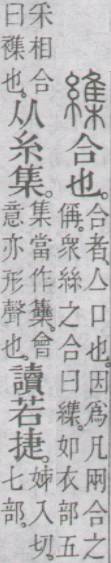 䌖合也。合者、亼口也。因爲凡兩合之
偁。衆絲之合曰䌖。如衣部五
采相合
曰襍也。从糸集。集當作雧。會
意亦形聲也。讀若捷。姊入切。
七部。